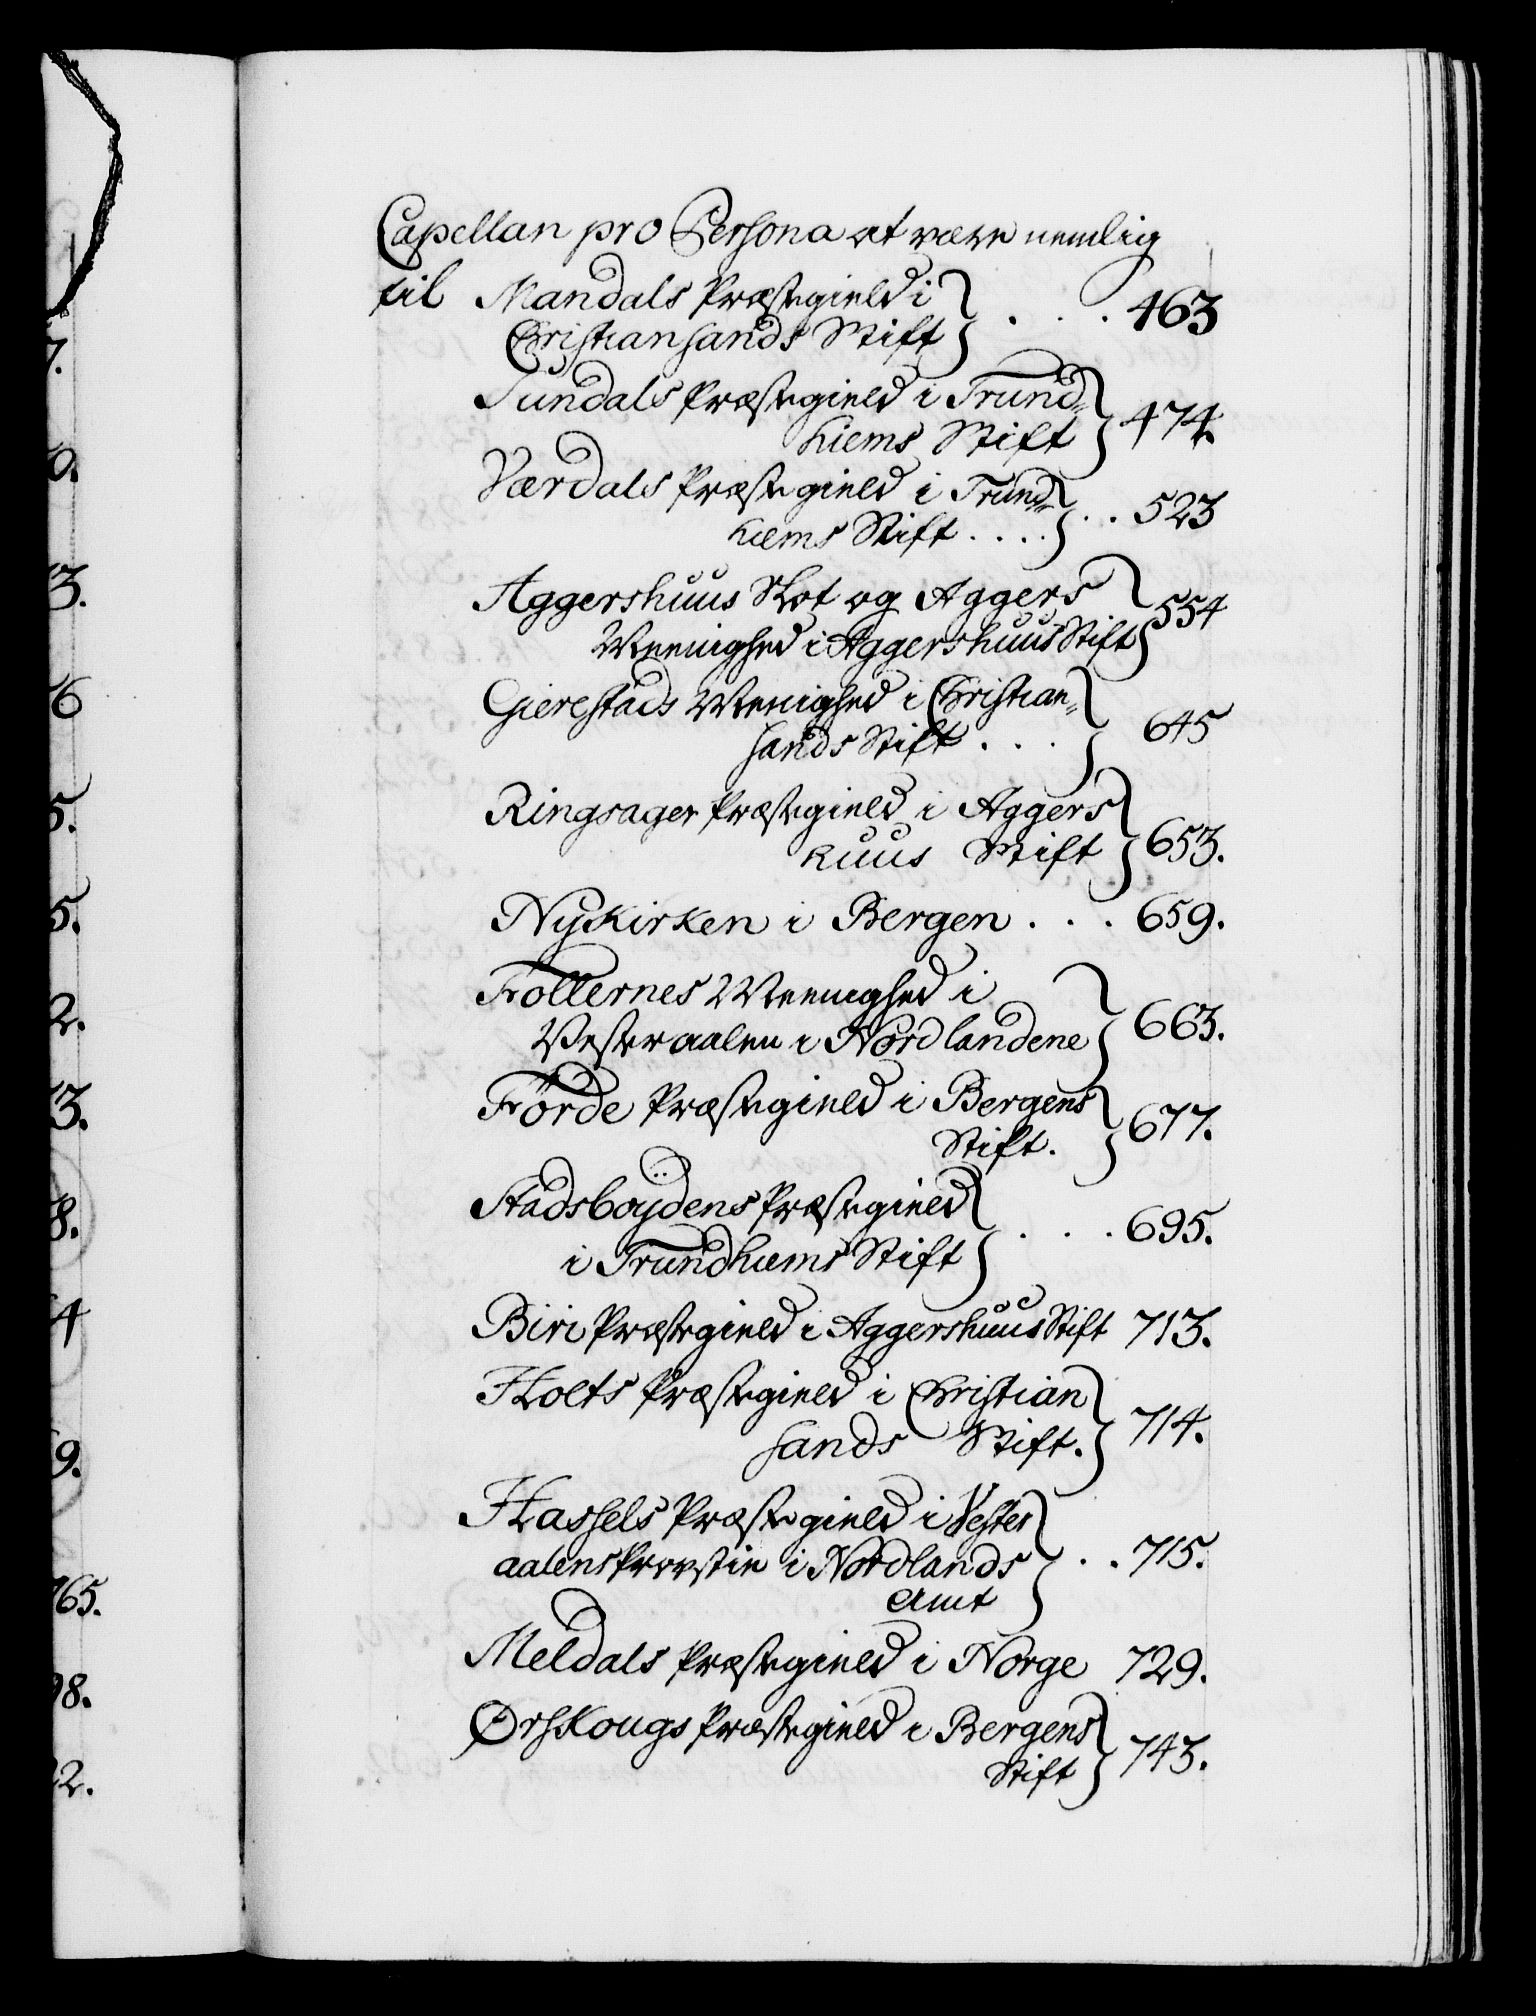 Capellan pro Persona at være nemlig
til Mandals Præstegield i
Christiansands Stift . . . 463
Sundals Præstegield i Trund„
hiems Stift 474.
Værdals Præstegield i Trund„
hiems Stift . . . . . . 523
Aggershuus Slot og Aggers
Meenighed i Aggershuus Stift 554
Gierestads Menighed i Christian„
sands Stift . . . 645
Ringsager Præstegield i Aggers
huus Stift 653.
Nykirken i Bergen . . . 659.
Meenighed i
Vesteraalen i Nordlandene 663.
Förde Præstegield i Bergens
Stift. 677.
Stadsboÿdens Præstegield
i Trundhiems Stift . . . 695.
Biri Præstegield i Aggershuus Stift 713.
Holts Præstegield i Christian
sands Stift. 714.
Hassels Præstegield i Vester
aalens Provstie i Nordlands
Amt . . 715.
Meldals Præstegield i Norge 729.
Ørskougs Præstegield i Bergens
Stift 743.
7.
0.
3.
6
5.
5.
2.
13.
8.
4
9.
765.
98.
22.